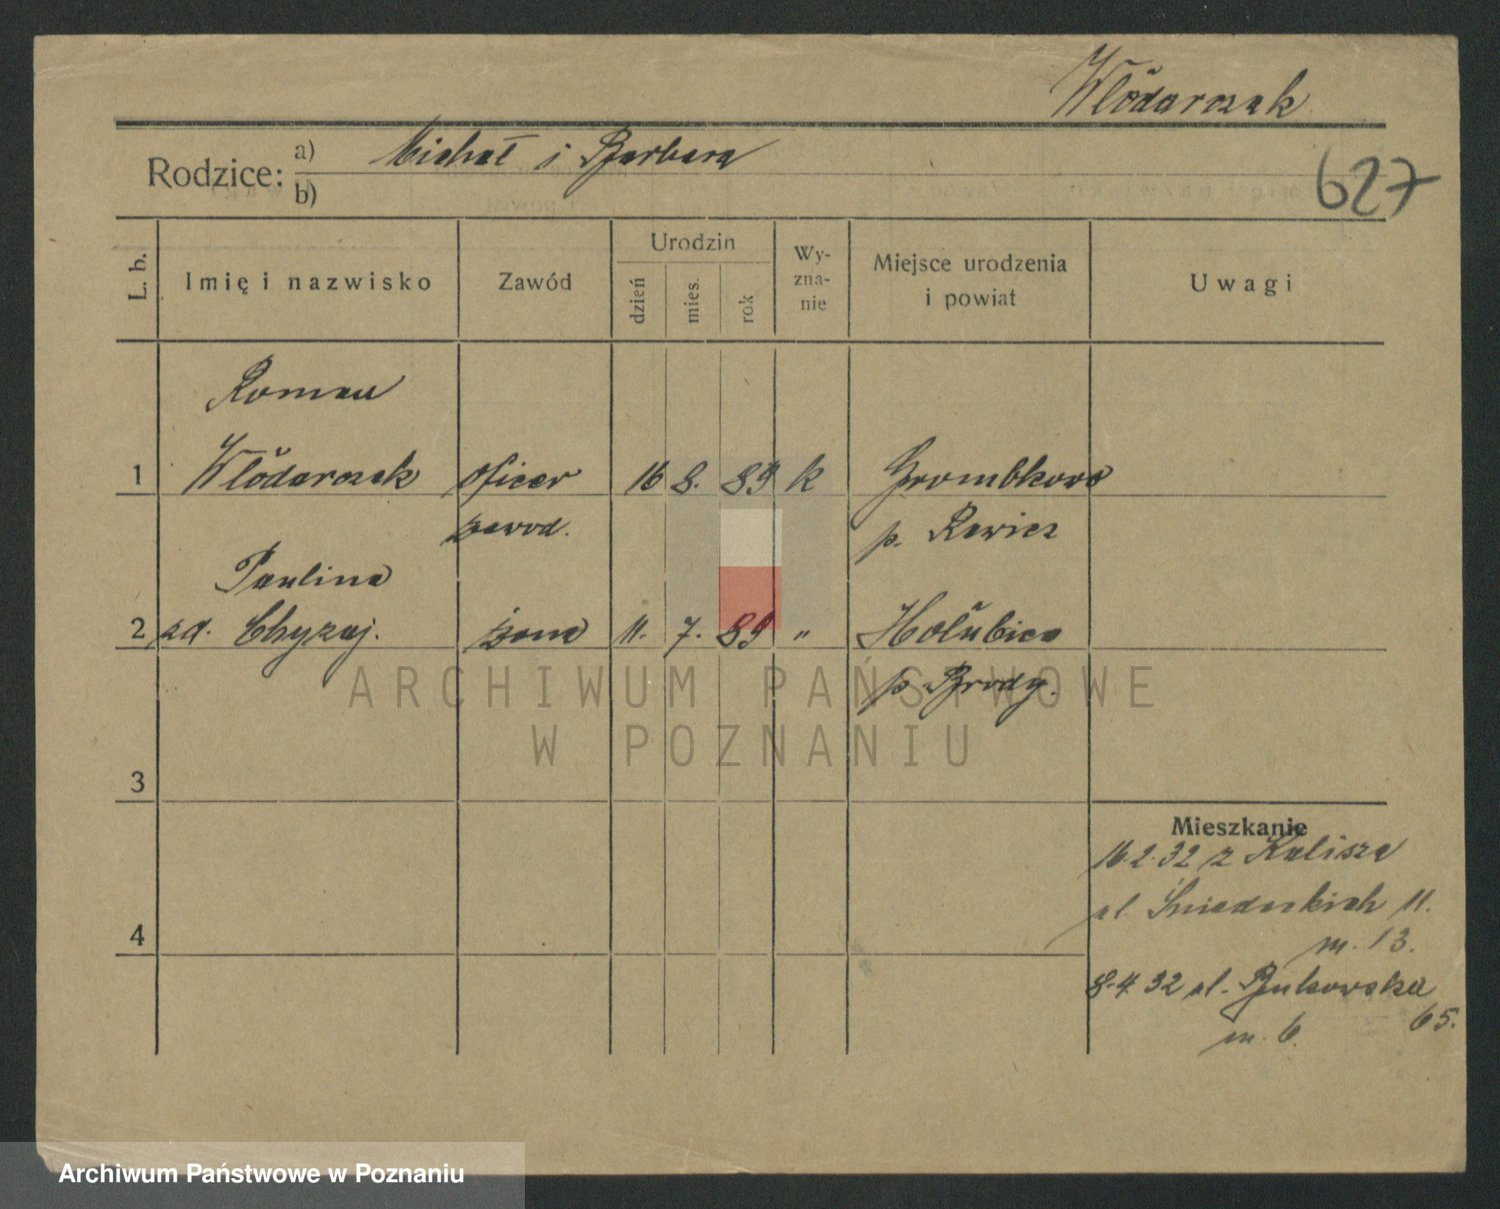 Włodarczak
Rodzice: a) Michał i Barbara
b)
627
L. b.
Imię i nazwisko
Zawód
Urodzin
dzień
mies.
rok
Wy-
zna-
nie
Miejsce urodzenia
i powiat
Uwagi
Roman
1 Włodarczak oficer 16 8. 89 k Grombkowo
zawod. p. Rawicz
Paulina
2 zd. Chyzaj. żona 11. 7. 89 " Hołubica
p. Brody.
3
4
Mieszkanie
16.2.32 z Kalisza
ul. Śniadeckich 11.
m. 13.
8.4.32 ul. Bukowska
65.
m. 6.
ARCHIWUM PAŃSTWOWE
W POZNANIU
Archiwum Państwowe w Poznaniu